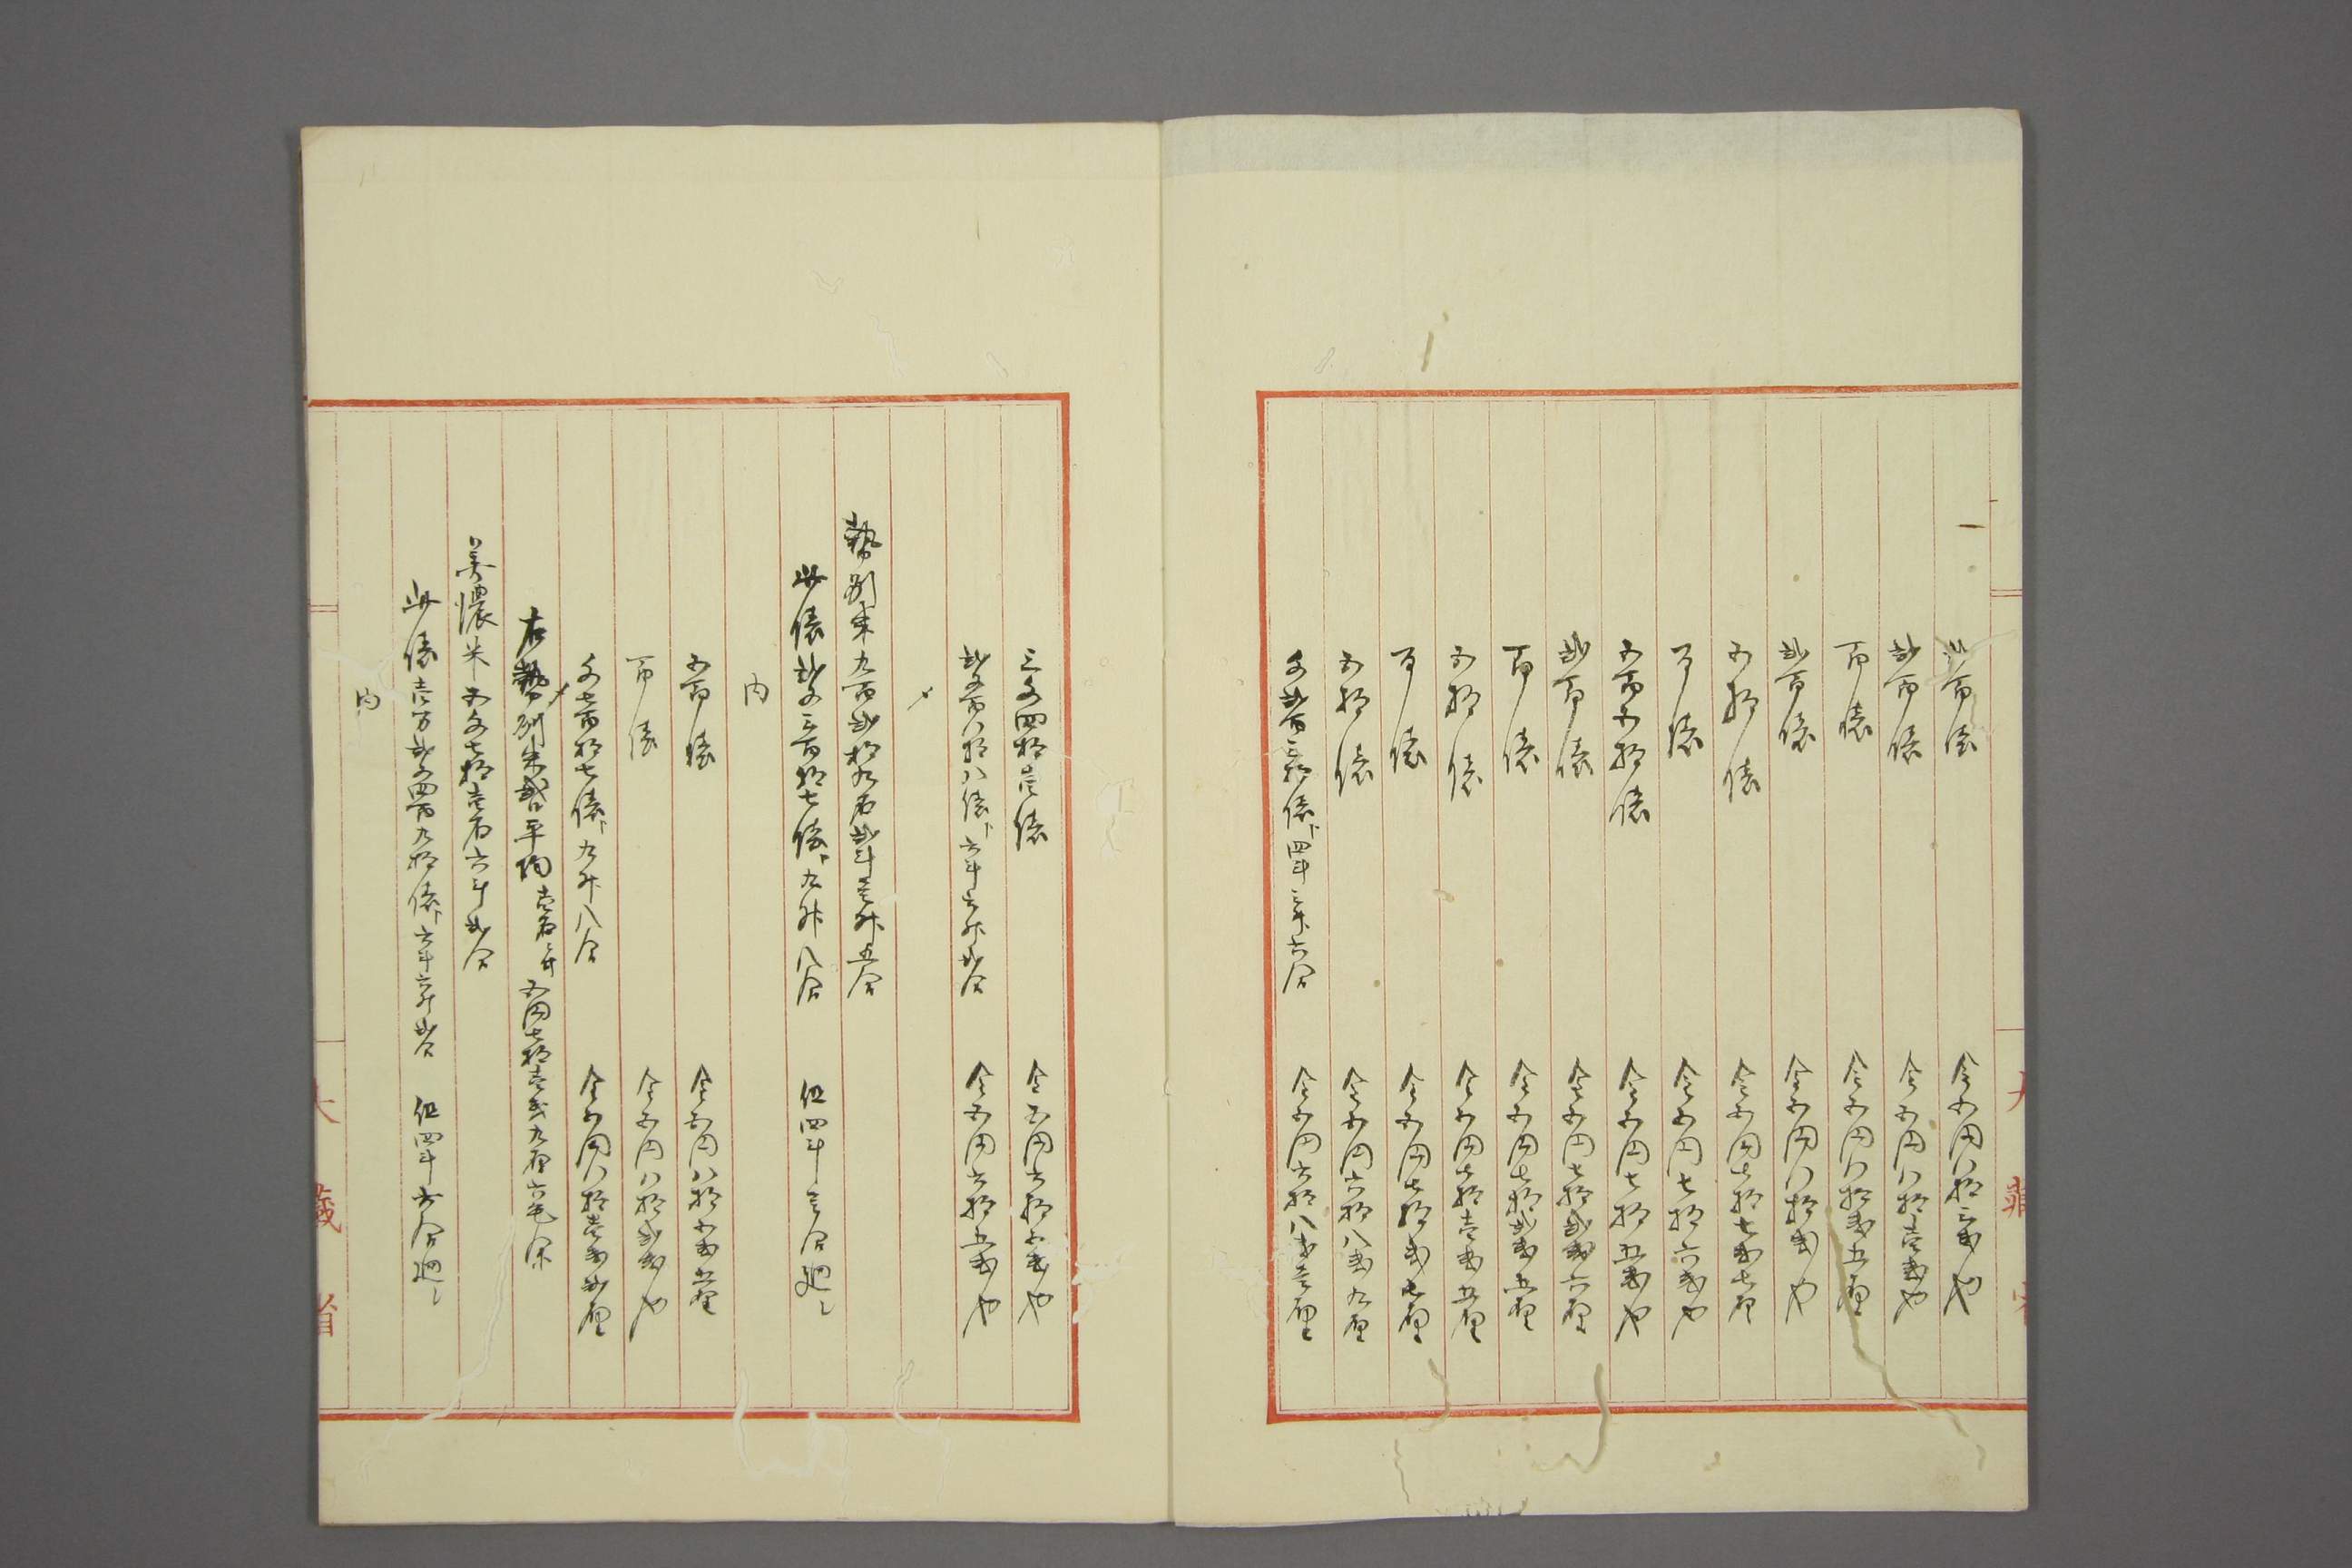 弐百俵 金五円八拾三銭也
弐百俵 金五円八拾壱銭也
百俵 金五円八拾銭五厘
弐百俵 金五円八拾銭也
五拾俵 金五円七拾七銭七厘
百俵 金五円七拾六銭也
五百五拾俵 金五円七拾五銭也
弐百俵 金五円七拾弐銭六厘
百俵 金五円七拾弐銭五厘
五拾俵 金五円七拾壱銭五厘
百俵 金五円七拾銭七厘
五拾俵 金五円六拾八銭九厘
千弐百三拾俵ト四斗三升六合 金五円六拾八銭壱厘
三千四拾壱俵 金五円六拾五銭也
弐千百八拾八俵ト六斗六升弐合 金五円六拾五銭也
〆
勢州米九百弐拾九石弐斗壱升五合
此俵弐千三百拾七俵ト九升八合 但四斗壱合廻シ
内
五百俵 金五円八拾五銭五厘
百俵 金五円八拾弐銭也
千七百拾七俵ト九升八合 金五円八拾壱銭弐厘
〆
右勢州米惣平均 壱石ニ付 五円七拾壱銭九厘六毛余
美濃米五千七拾壱石六斗弐合
此俵壱万弐千四百九拾俵ト六斗六升弐合 但四斗六合廻シ
内
大藏省
大藏省